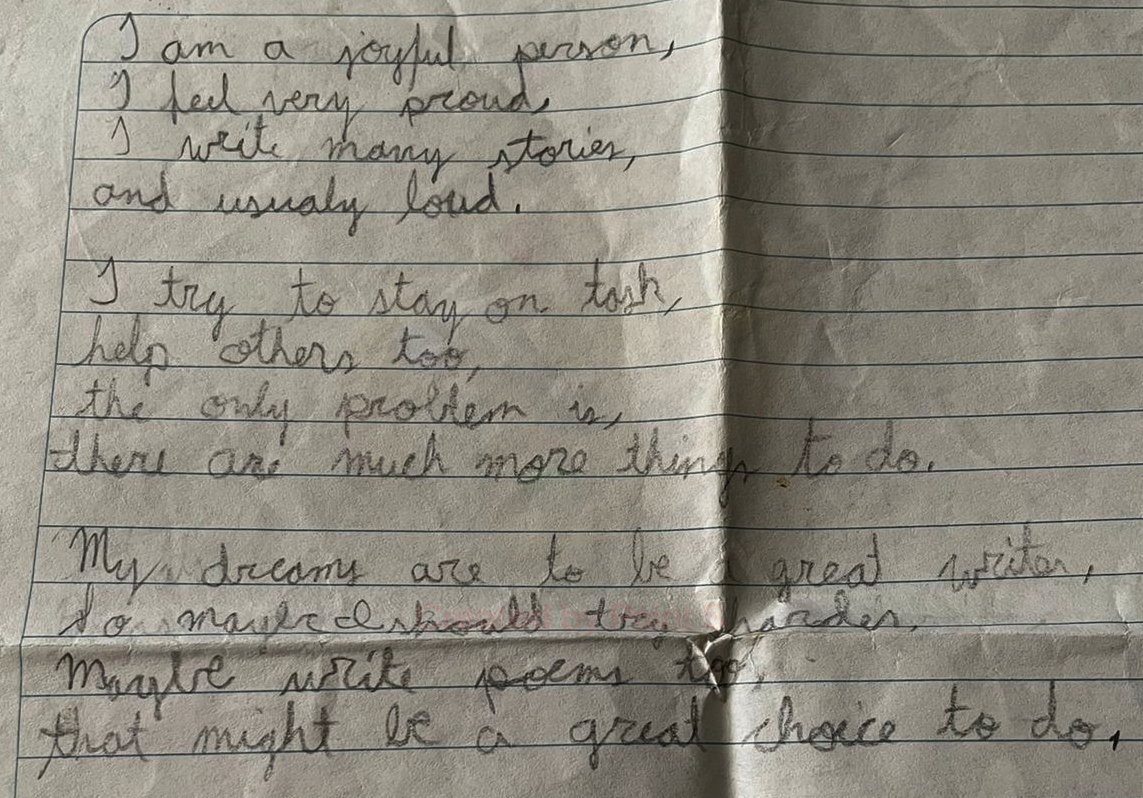 I am a joyful person,
I feel very proud,
I write many stories,
and usualy loud.
I try to stay on task,
help others too,
the only problem is,
there are much more things to do.
My dreams are to be a great writer,
So maybe I should try harder.
Maybe write poems too,
that might be a great choice to do.